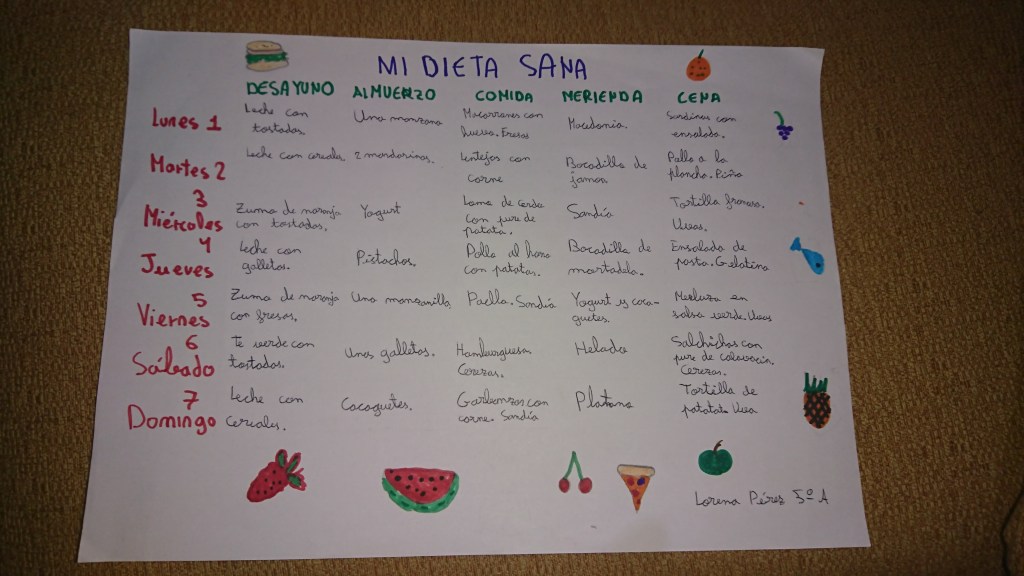 MI DIETA SANA
DESAYUNO AlMUERZO COMIDA MERIENDA CENA
Lunes 1
Leche con
tostadas.
Una manzana
Macarrones con
huevo. Fresas
Macedonia.
Sardinas con
ensalada.
Martes 2
Leche con cereales
2 mandarinas.
Lentejas con
carne
Bocadillo de
jamon.
Pollo a la
plancha. Piña
3
Miércoles
Zumo de naranja
con tostadas.
Yogurt
Lomo de cerdo
con pure de
patata.
Sandía
Tortilla francesa.
Uvas.
4
Jueves
Leche con
galletas.
Pistachos.
Pollo al horno
con patatas.
Bocadillo de
mortadela.
Ensalada de
pasta. Gelatina
5
Viernes
Zumo de naranja
con fresas.
Una manzanilla
Paella. Sandía
Yogurt y caca-
guetes.
Merluza en
salsa verde. Uvas
6
Sábado
te verde con
tostadas.
Unas galletas.
Hamburguesa
Cerezas.
Helado
Salchichas con
pure de calavacín.
Cerezas.
7
Domingo
Leche con
cereales.
Cacaguetes.
Garbanzos con
carne. Sandía
Platano
Tortilla de
patatat. Uva
Lorena Pérez 5º A